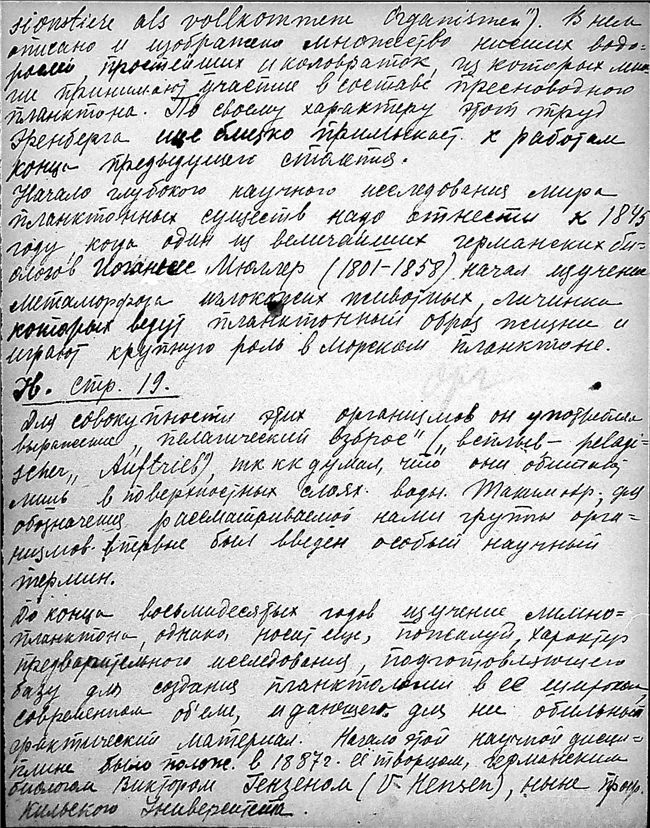 sionstiere als vollkommene Organismen"). В нем
описано и изображено множество низших водо-
рослей, простейших и коловраток, из которых мно-
гие принимают участие в составе пресноводного
планктона. По своему характеру этот труд
Эренберга еще близко примыкает к работам
конца предыдущего столетия.
Начало глубокого научного исследования мира
планктонных существ надо отнести к 1845
году, когда один из величайших германских би-
ологов Иоганнес Мюллер (1801-1858) начал изучение
метаморфоза иглокожих животных, личинки
которых ведут планктонный образ жизни и
играют крупную роль в морском планктоне.
Н. стр. 19.
орг
Для совокупности этих организмов он употребил
выражение "пелагический взброс" ("всплыв- pelagi-
scher "Auftrieb"), тк кк думал, что они обитают
лишь в поверхностных слоях воды. Таким обр. для
обозначения рассматриваемой нами группы орга-
низмов впервые был введен особый научный
термин.
До конца восьмидесятых годов изучение лимно-
планктона, однако, носит еще, пожалуй, характер
предварительного исследования, подготовляющего
базу для создания планктологии в ее широком
современном об'еме, и дающего для нее обильный
фактический материал. Начало этой научной дисци-
плине было полож. в 1887г. ее творцом, германским
биологом Виктором Гензеном (V. Hensen), ныне проф.
Кильского Университета.